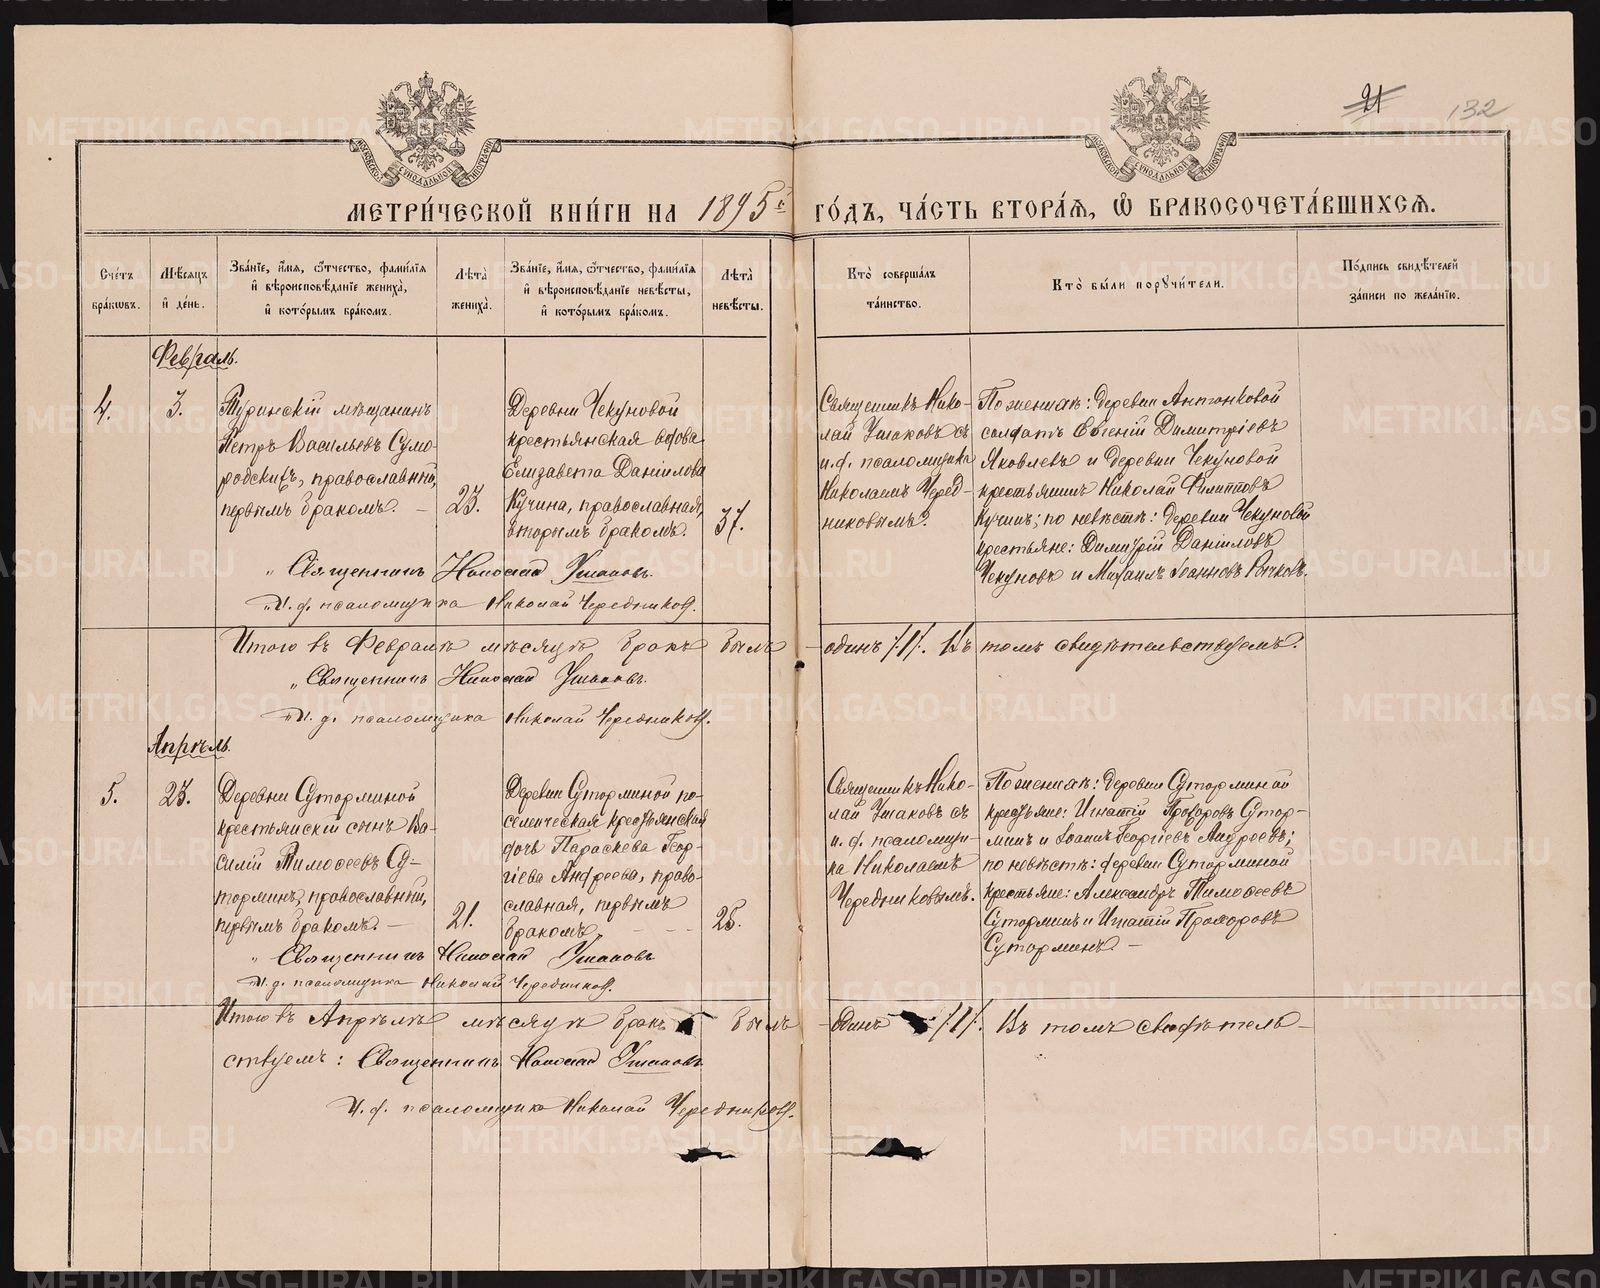 21
132
МОСКОВСКОЙ СѴНОДАЛЬНОЙ ТИПОГРАФІИ
МОСКОВСКОЙ СѴНОДАЛЬНОЙ ТИПОГРАФІИ
МЕТРИ́ЧЕСКОЙ КНИ́ГИ НА 1895й ГО́ДЪ, ЧА́СТЬ ВТОРА́Ѧ, Ѽ БРАКОСОЧЕТА́ВШИХСѦ.
Сче́тъ
бра́кѡвъ.
Мѣ́сѧцъ
и҆ де́нь.
Зва́нїе, и҆́мѧ, ѻ҆́тчество, фами́лїѧ
и҆ вѣроисповѣ́данїе жениха̀,
и҆ кото́рымъ бра́комъ.
Лѣ́та
жениха̀.
Зва́нїе, и҆́мѧ, ѻ҆́тчество, фами́лїѧ
и҆ вѣроисповѣ́данїе невѣ́сты,
и҆ кото́рымъ бра́комъ.
Лѣ́та
невѣ́сты.
Кто̀ соверша́лъ
та́инство.
Кто̀ бы́ли порꙋчи́тели.
По́дпись свидѣ́телей
за́писи по жела́нїю.
Февраль.
4.
3.
Туринскій мѣщанинъ
Петръ Васильевъ Сумо-
родскихъ, православный,
первымъ бракомъ. –
23.
Деревни Чекуновой
крестьянская вдова
Елизавета Даніилова
Кучина, православная,
вторымъ бракомъ.
37.
Священникъ Нико-
лай Ушаковъ съ
и.д. псаломщика
Николаемъ Черед-
никовымъ.
По женихѣ: деревни Антонковой
солдатъ Евгеній Димитріевъ
Яковлевъ и деревни Чекуновой
крестьянинъ Николай Филипповъ
Кучинъ; по невѣстѣ: деревни Чекуновой
крестьяне: Димитрій Даніиловъ
Чекуновъ и Михаилъ Іоанновъ Рычковъ.
„ Священникъ Николай Ушаковъ.
„И. д. псаломщика Николай Чередниковъ.
Итого въ Февралѣ мѣсяцѣ бракъ былъ – одинъ /1/. Въ томъ свидѣтельствуемъ.
„ Священникъ Николай Ушаковъ.
„И. д. псаломщика Николай Чередниковъ.
Апрѣль.
5.
23.
Деревни Суторминой
крестьянскій сынъ Ва-
силій Тимоѳеевъ Су-
торминъ, православный,
первымъ бракомъ. –
21.
Деревни Суторминой по-
селенческая крестьянская
дочь Параскева Геор-
гіева Андреева, право-
славная, первымъ
бракомъ.
25.
Священникъ Нико-
лай Ушаковъ съ
и. д. псаломщи-
ка Николаемъ
Чередниковымъ.
По женихѣ: деревни Суторминой
крестьяне: Игнатій Прохоровъ Сутор-
минъ и Іоаннъ Георгіевъ Андреевъ;
по невѣстѣ: деревни Суторминой
крестьяне: Александръ Тимоѳеевъ
Суторминъ и Игнатій Прохоровъ
Суторминъ. –
„ Священникъ Николай Ушаковъ
И. д. псаломщика Николай Чередниковъ.
Итого въ Апрѣлѣ мѣсяцѣ бракъ былъ – одинъ /1/. Въ томъ свидѣтель-
ствуемъ: Священникъ Николай Ушаковъ
И. д. псаломщика Николай Чередниковъ.
METRIKI.GASO-URAL.RU